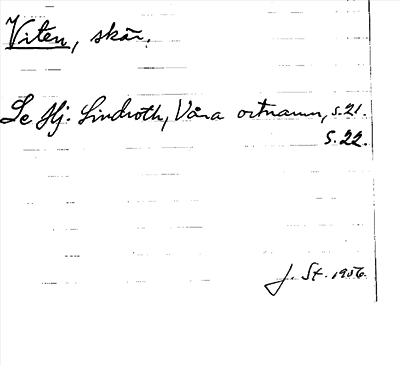 Viten, skär.
Se Hj. Lindroth, Våra ortnamn, s. 21.
s. 22.
J. St. 1956.